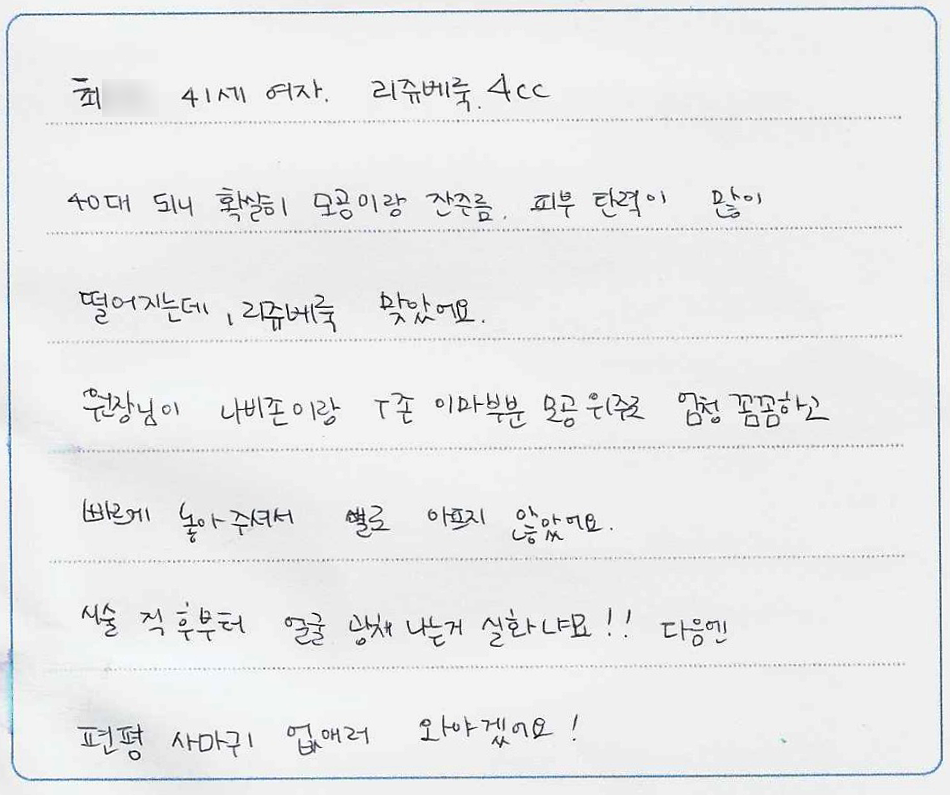 최 41세 여자. 리쥬베룩. 4cc
40대 되니 확실히 모공이랑 잔주름. 피부 탄력이 많이
떨어지는데, 리쥬베룩 맞았어요.
원장님이 나비존이랑 T존 이마부분 모공 위주로 엄청 꼼꼼하고
빠르게 놓아주셔서 별로 아프지 않았어요.
시술 직후부터 얼굴 광채 나는거 실화냐요!! 다음엔
편평 사마귀 없애러 와야겠어요!